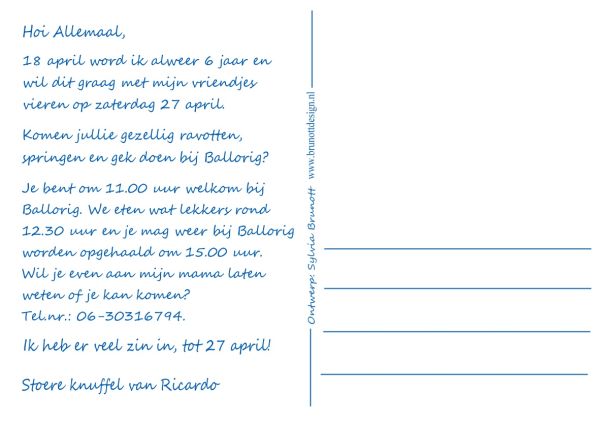 Hoi Allemaal,
18 april word ik alweer 6 jaar en
wil dit graag met mijn vriendjes
vieren op zaterdag 27 april.
Komen jullie gezellig ravotten,
springen en gek doen bij Ballorig?
Je bent om 11.00 uur welkom bij
Ballorig. We eten wat lekkers rond
12.30 uur en je mag weer bij Ballorig
worden opgehaald om 15.00 uur.
Wil je even aan mijn mama laten
weten of je kan komen?
Tel.nr.: 06-30316794.
Ik heb er veel zin in, tot 27 april!
Stoere knuffel van Ricardo
Ontwerp: Sylvia Brunott www.brunottdesign.nl